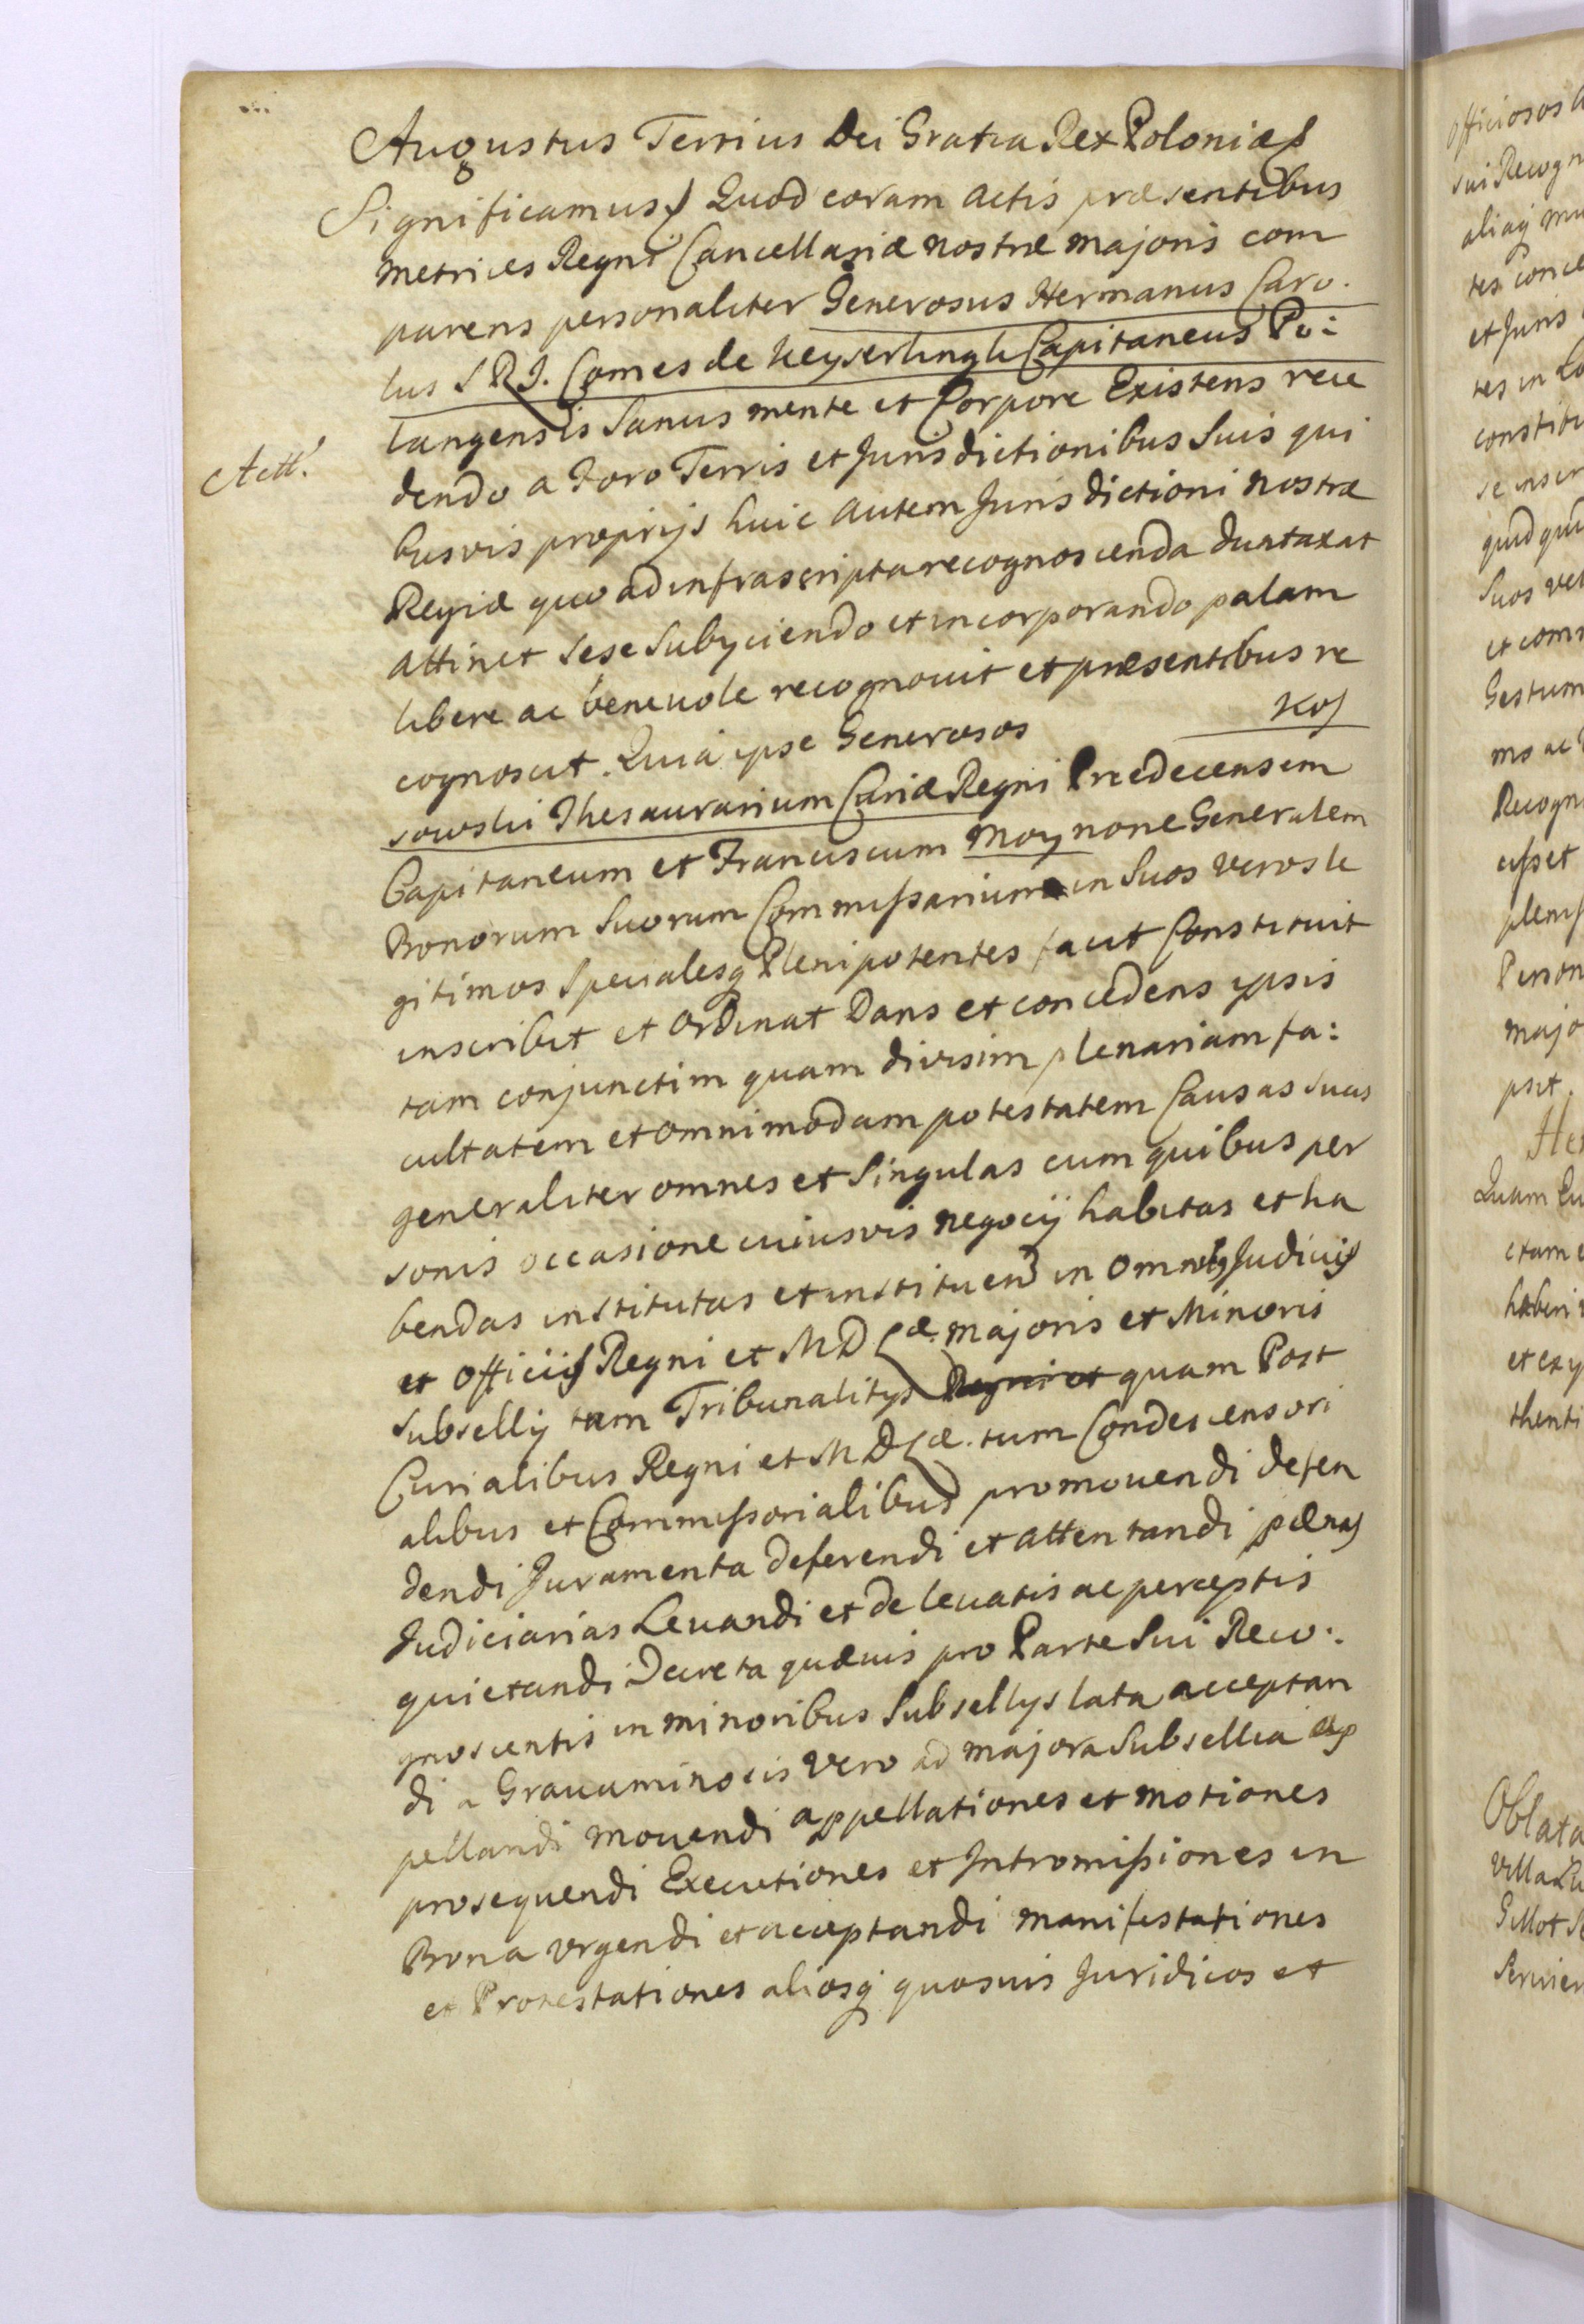 Augustus Tertius Dei Gratia Rex Poloniæ
Significamus Quod coram Actis præsentibus
Metrices Regni Cancellariæ nostræ majoris com
parens personaliter Generosus Hermanus Caro.
lus S R J. Comes de Keyserlingk Capitaneus Po:
langensis Sanus mente et Corpore Existens rece
dendo a Foro Terris et Jurisdictionibus Suis qui
busvis proprijs huic autem Jurisdictioni nostræ
Regiæ quo ad infrascripta recognoscenda duntaxat
attinet Sese Subyciendo et incorporando palam
libere ac benevole recognovit et præsentibus re
cognoscit. Quia ipse Generosos Kos
sowski Thesaurarium Curiæ Regni Predecensem
Capitaneum et Franciscum Moynone Generalem
Bonorum Suorum Commissarium in Suos veros le
gitimos Specialesq Plenipotentes facit Constituit
inscribit et ordinat Dans et concedens ipsis
tam conjunctim quam divisim plenariam fa:
cultatem et omnimodam potestatem Causas suas
generaliter omnes et Singulas cum quibus per
sonis occasione cuiusvis negocij habitas et ha
bendas institutas et instituend in omnibq Judicijs
et Officijs Regni et M D L æ. majoris et Minoris
Subsellij tam Tribunalitijs Regni et quam Post
Curialibus Regni et M D L æ. tum Condescensori
alibus et Commissorialibus promovendi defen
dendi Juramenta deferendi et attentandi pænas
Judiciarias Levandi et de levatis ac perceptis
quietandi Decreta quævis pro Parte Sui Reco:
gnoscentis in minoribus Subsellys lata acceptan
di a Gravaminosis vero ad majora Subsellia ap
pellandi movendi appellationes et motiones
prosequendi Executiones et Intromissiones in
Bona urgendi et acceptandi manifestationes
et Protestationes aliosq quosvis Juridicos et
Actt.
officiosos
sui Recogn
aliaq
tes conce
et Juris
tes in
constitu
se inser
quid
Suos vel
et com
Gestum
ac
Recogn
esset
Person
majo
psit
Quam
etiam
haberi
et
thenti
Oblata
Villa
Gillot
Servien